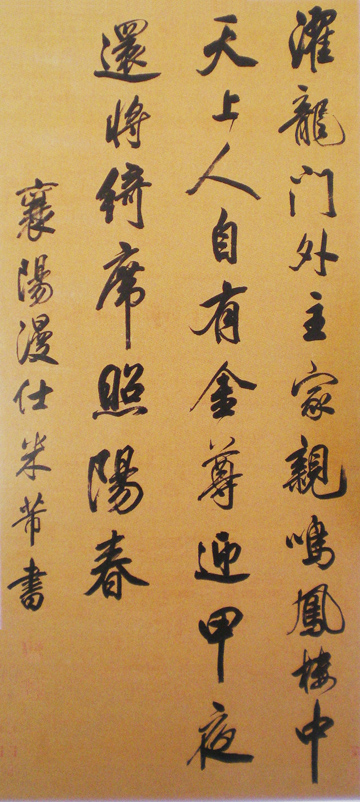 濯龍門外主家親鳴鳳樓中
天上人自有金尊迎甲夜
還將綺席照陽春
襄陽漫仕米芾書